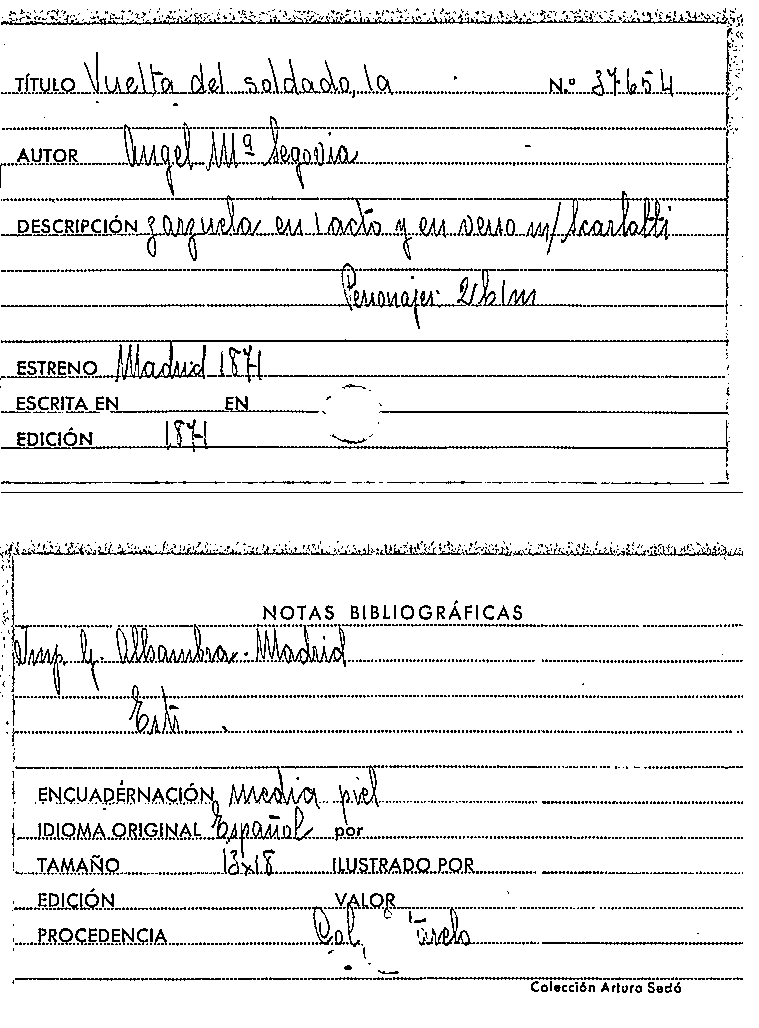 TÍTULO Vuelta del soldado, la N.º 37654
AUTOR Angel Mª Segovia
DESCRIPCIÓN zarzuela en 1 acto y en verso m/ Scarlatti
Personajes: 2/b/m
ESTRENO Madrid 1871
ESCRITA EN EN
EDICIÓN 1871
NOTAS BIBLIOGRÁFICAS
Imp. G. Alhambra. Madrid
ENCUADÉRNACIÓN media piel
IDIOMA ORIGINAL Español por
TAMAÑO 13x18 ILUSTRADO POR
EDICIÓN VALOR
PROCEDENCIA Col.
Colección Arturo Sedó